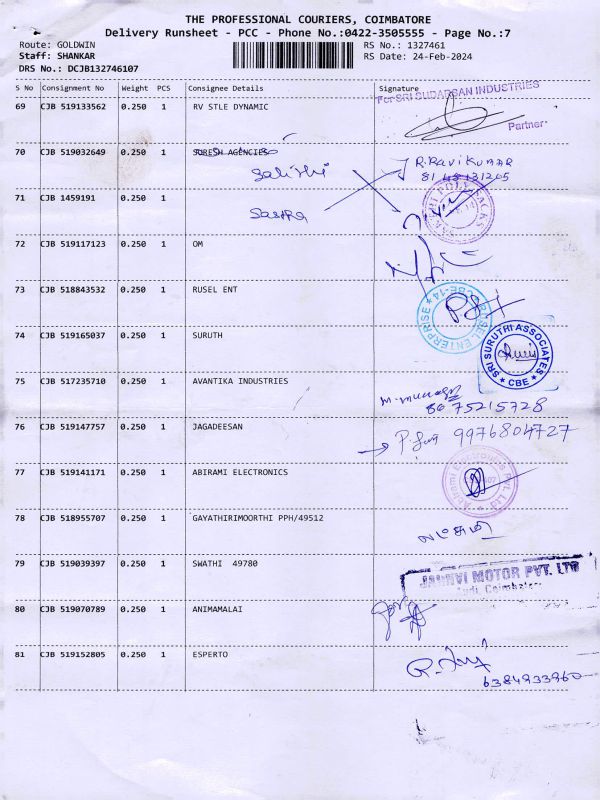 THE PROFESSIONAL COURIERS, COIMBATORE
Delivery Runsheet - PCC - Phone No.:0422-3505555 - Page No.:7
Route: GOLDWIN RS No.: 1327461
Staff: SHANKAR RS Date: 24-Feb-2024
DRS No.: DCJB132746107
S No Consignment No Weight PCS Consignee Details Signature
For SRI SUDARSAN INDUSTRIES
69 CJB 519133562 0.250 1 RV STLE DYNAMIC
Partner
70 CJB 519032649 0.250 1 SURESH AGENCIES
R. Ravikumar
71 CJB 1459191 0.250 1
72 CJB 519117123 0.250 1 OM
73 CJB 518843532 0.250 1 RUSEL ENT
ENTERPRISE
74 CJB 519165037 0.250 1 SURUTH
SRI SURUTHI ASSOCIATES
★ CBE ★
75 CJB 517235710 0.250 1 AVANTIKA INDUSTRIES
75215728
76 CJB 519147757 0.250 1 JAGADEESAN
9976804727
77 CJB 519141171 0.250 1 ABIRAMI ELECTRONICS
Abirami Electronics Pvt. Ltd
78 CJB 518955707 0.250 1 GAYATHIRIMOORTHI PPH/49512
79 CJB 519039397 0.250 1 SWATHI 49780
JAHNVI MOTOR PVT. LTD
80 CJB 519070789 0.250 1 ANIMAMALAI
81 CJB 519152805 0.250 1 ESPERTO
6384933960